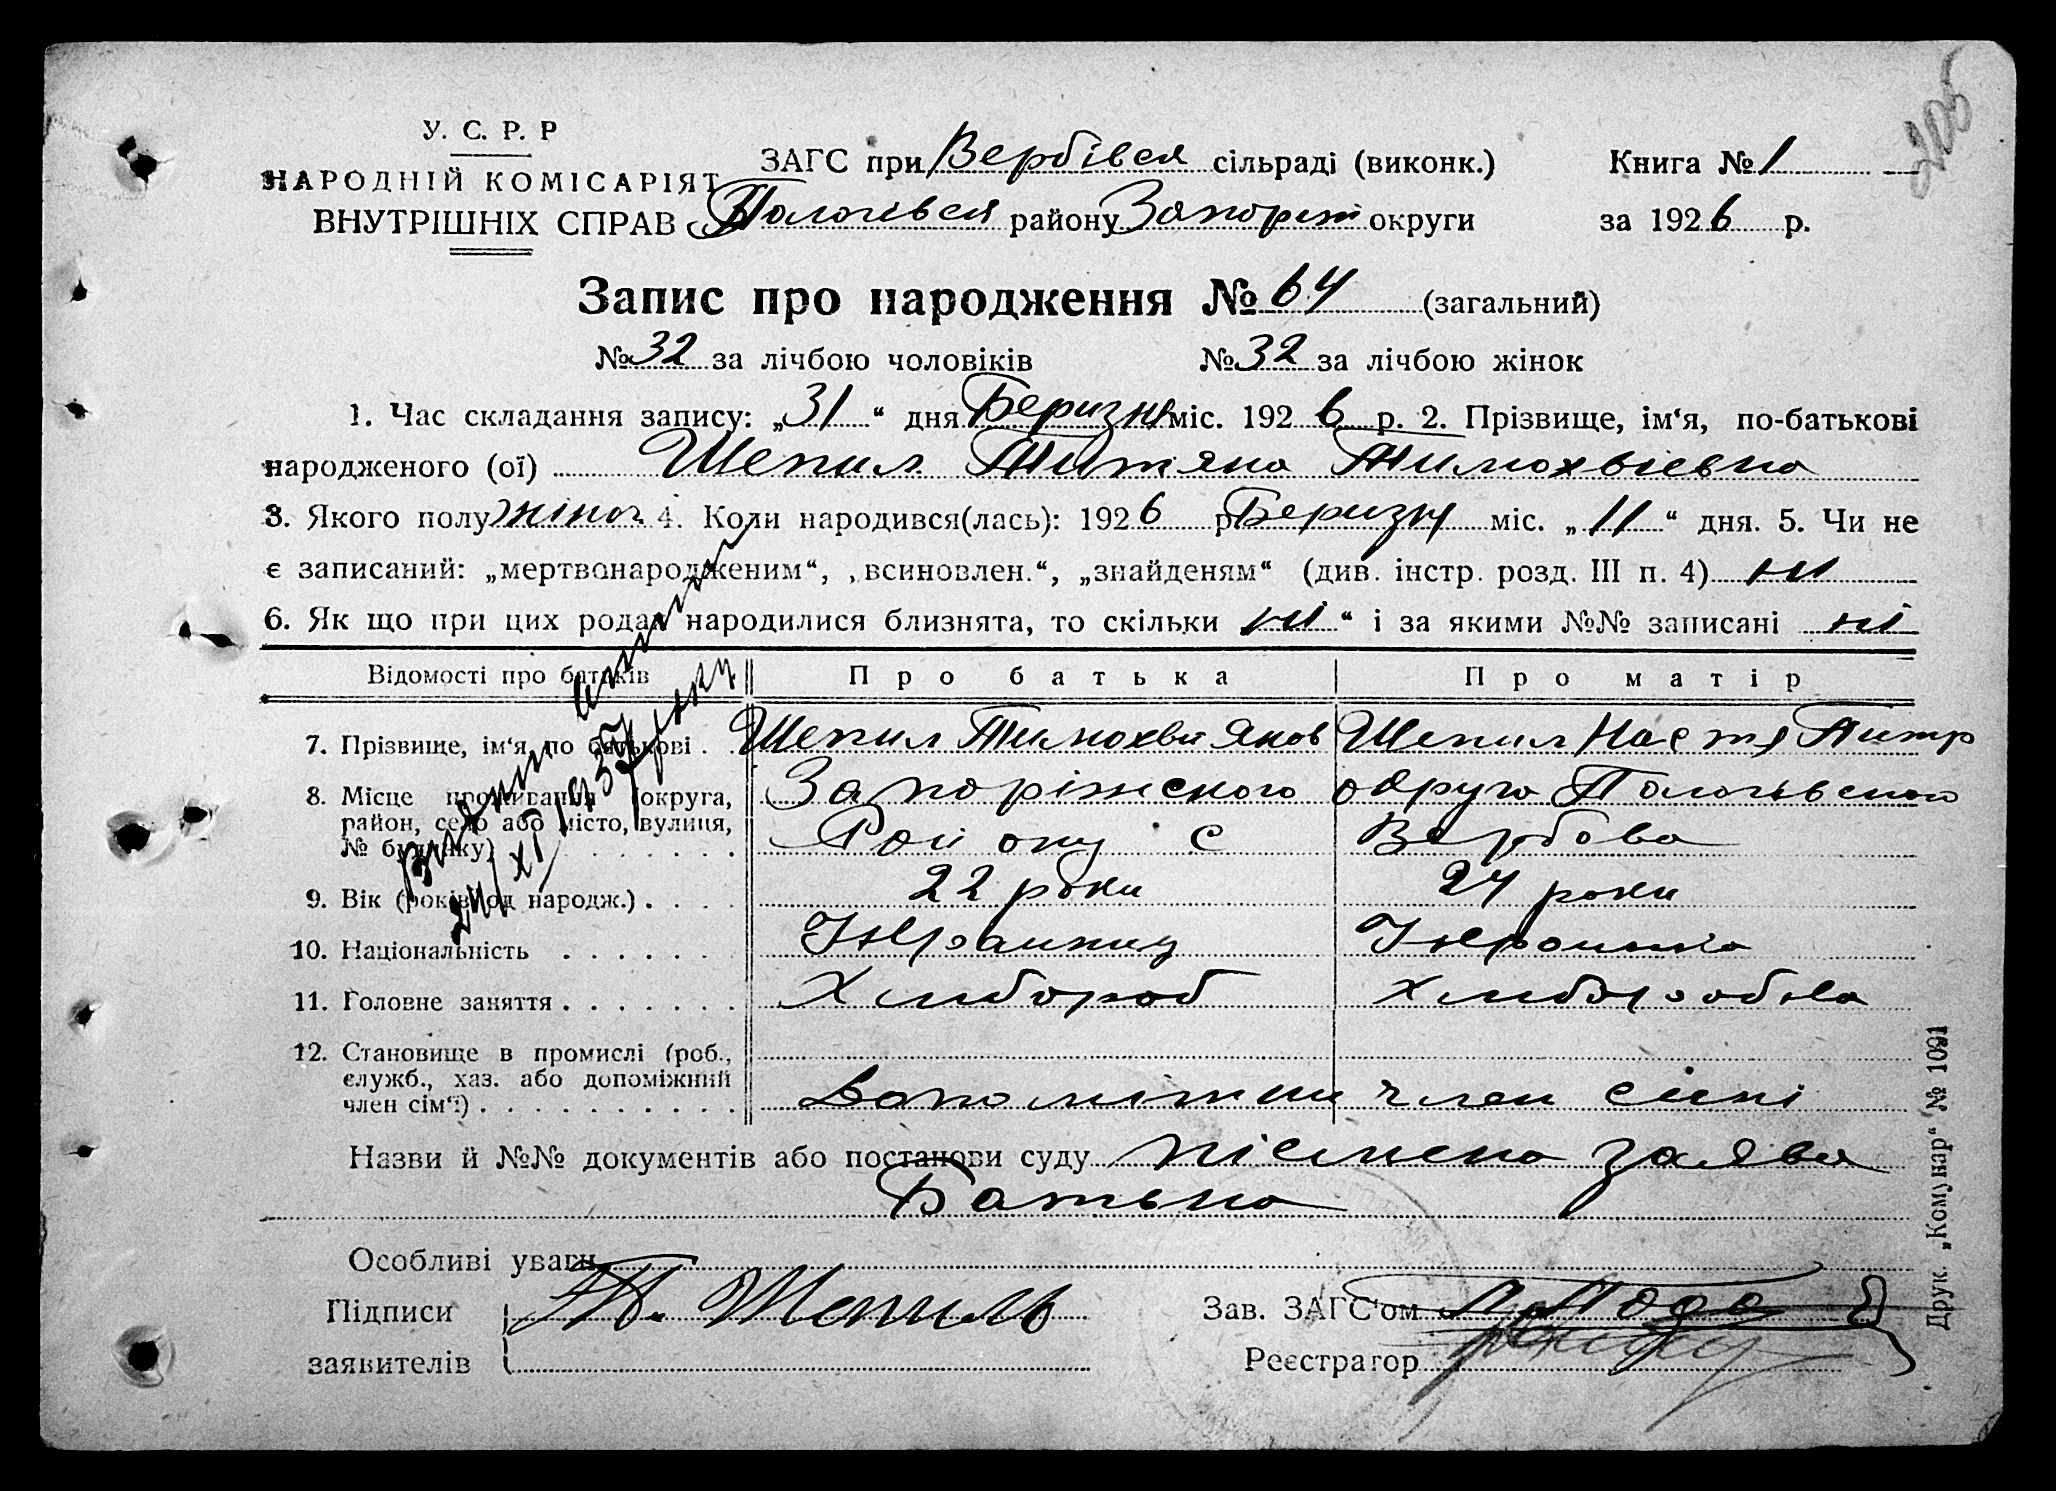 205
У. С. Р. Р
НАРОДНІЙ КОМІСАРІЯТ
ВНУТРІШНІХ СПРАВ
ЗАГС при Вербівся сільраді (виконк.) Книга № 1
Пологівся району Запоріж округи за 1926 р.
Запис про народження № 64 (загальний)
№ 32 за лічбою чоловіків № 32 за лічбою жінок
1. Час складання запису: „31“ дня Беризня міс. 1926 р. 2. Прізвище, ім‘я, по-батькові
народженого (ої) Шепил Титяна Тимохвієвна
3. Якого полу жіноч 4. Коли народився(лась): 1926 р Беризня міс. „11“ дня. 5. Чи не
є записаний: „мертвонародженим“, „всиновлен.“, „знайденям“ (див. інстр. розд. III п. 4) ні
6. Як що при цих родах народилися близнята, то скільки ні “ і за якими №№ записані ні
Відомості про батьків Про батька Про матір
7. Прізвище, ім‘я, по батькові . . Шепил Тимохви Яков Шепил Настя Питр
8. Місце проживання (округа, район, село або місто, вулиця, № будинку) Запоріжского округа Пологівского
Району с Вербова
9. Вік (років од народж.) . . . . 22 роки 24 роки
10. Національність . . . . . . Украинец Украинка
11. Головне заняття . . . . . . . Хлибороб хлиборобка
12. Становище в промислі (роб., служб., хаз. або допоміжний член сім‘ї) . . . . . . . . . . Допоміжни член сімі
24/XI 1937
Назви й №№ документів або постанови суду пісмена заява
Батька
Особливі уваги
Підписи Т. Шепиль Зав. ЗАГС'ом
заявителів Реєстратор
Друк. „Комунар“ № 1091